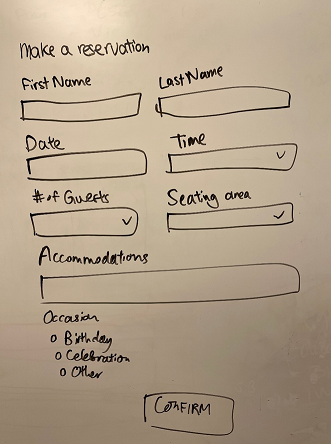 Make a reservation
First Name Last Name
Date Time
# of Guests Seating area
Accommodations
Occasion
Birthday
Celebration
Other
CONFIRM